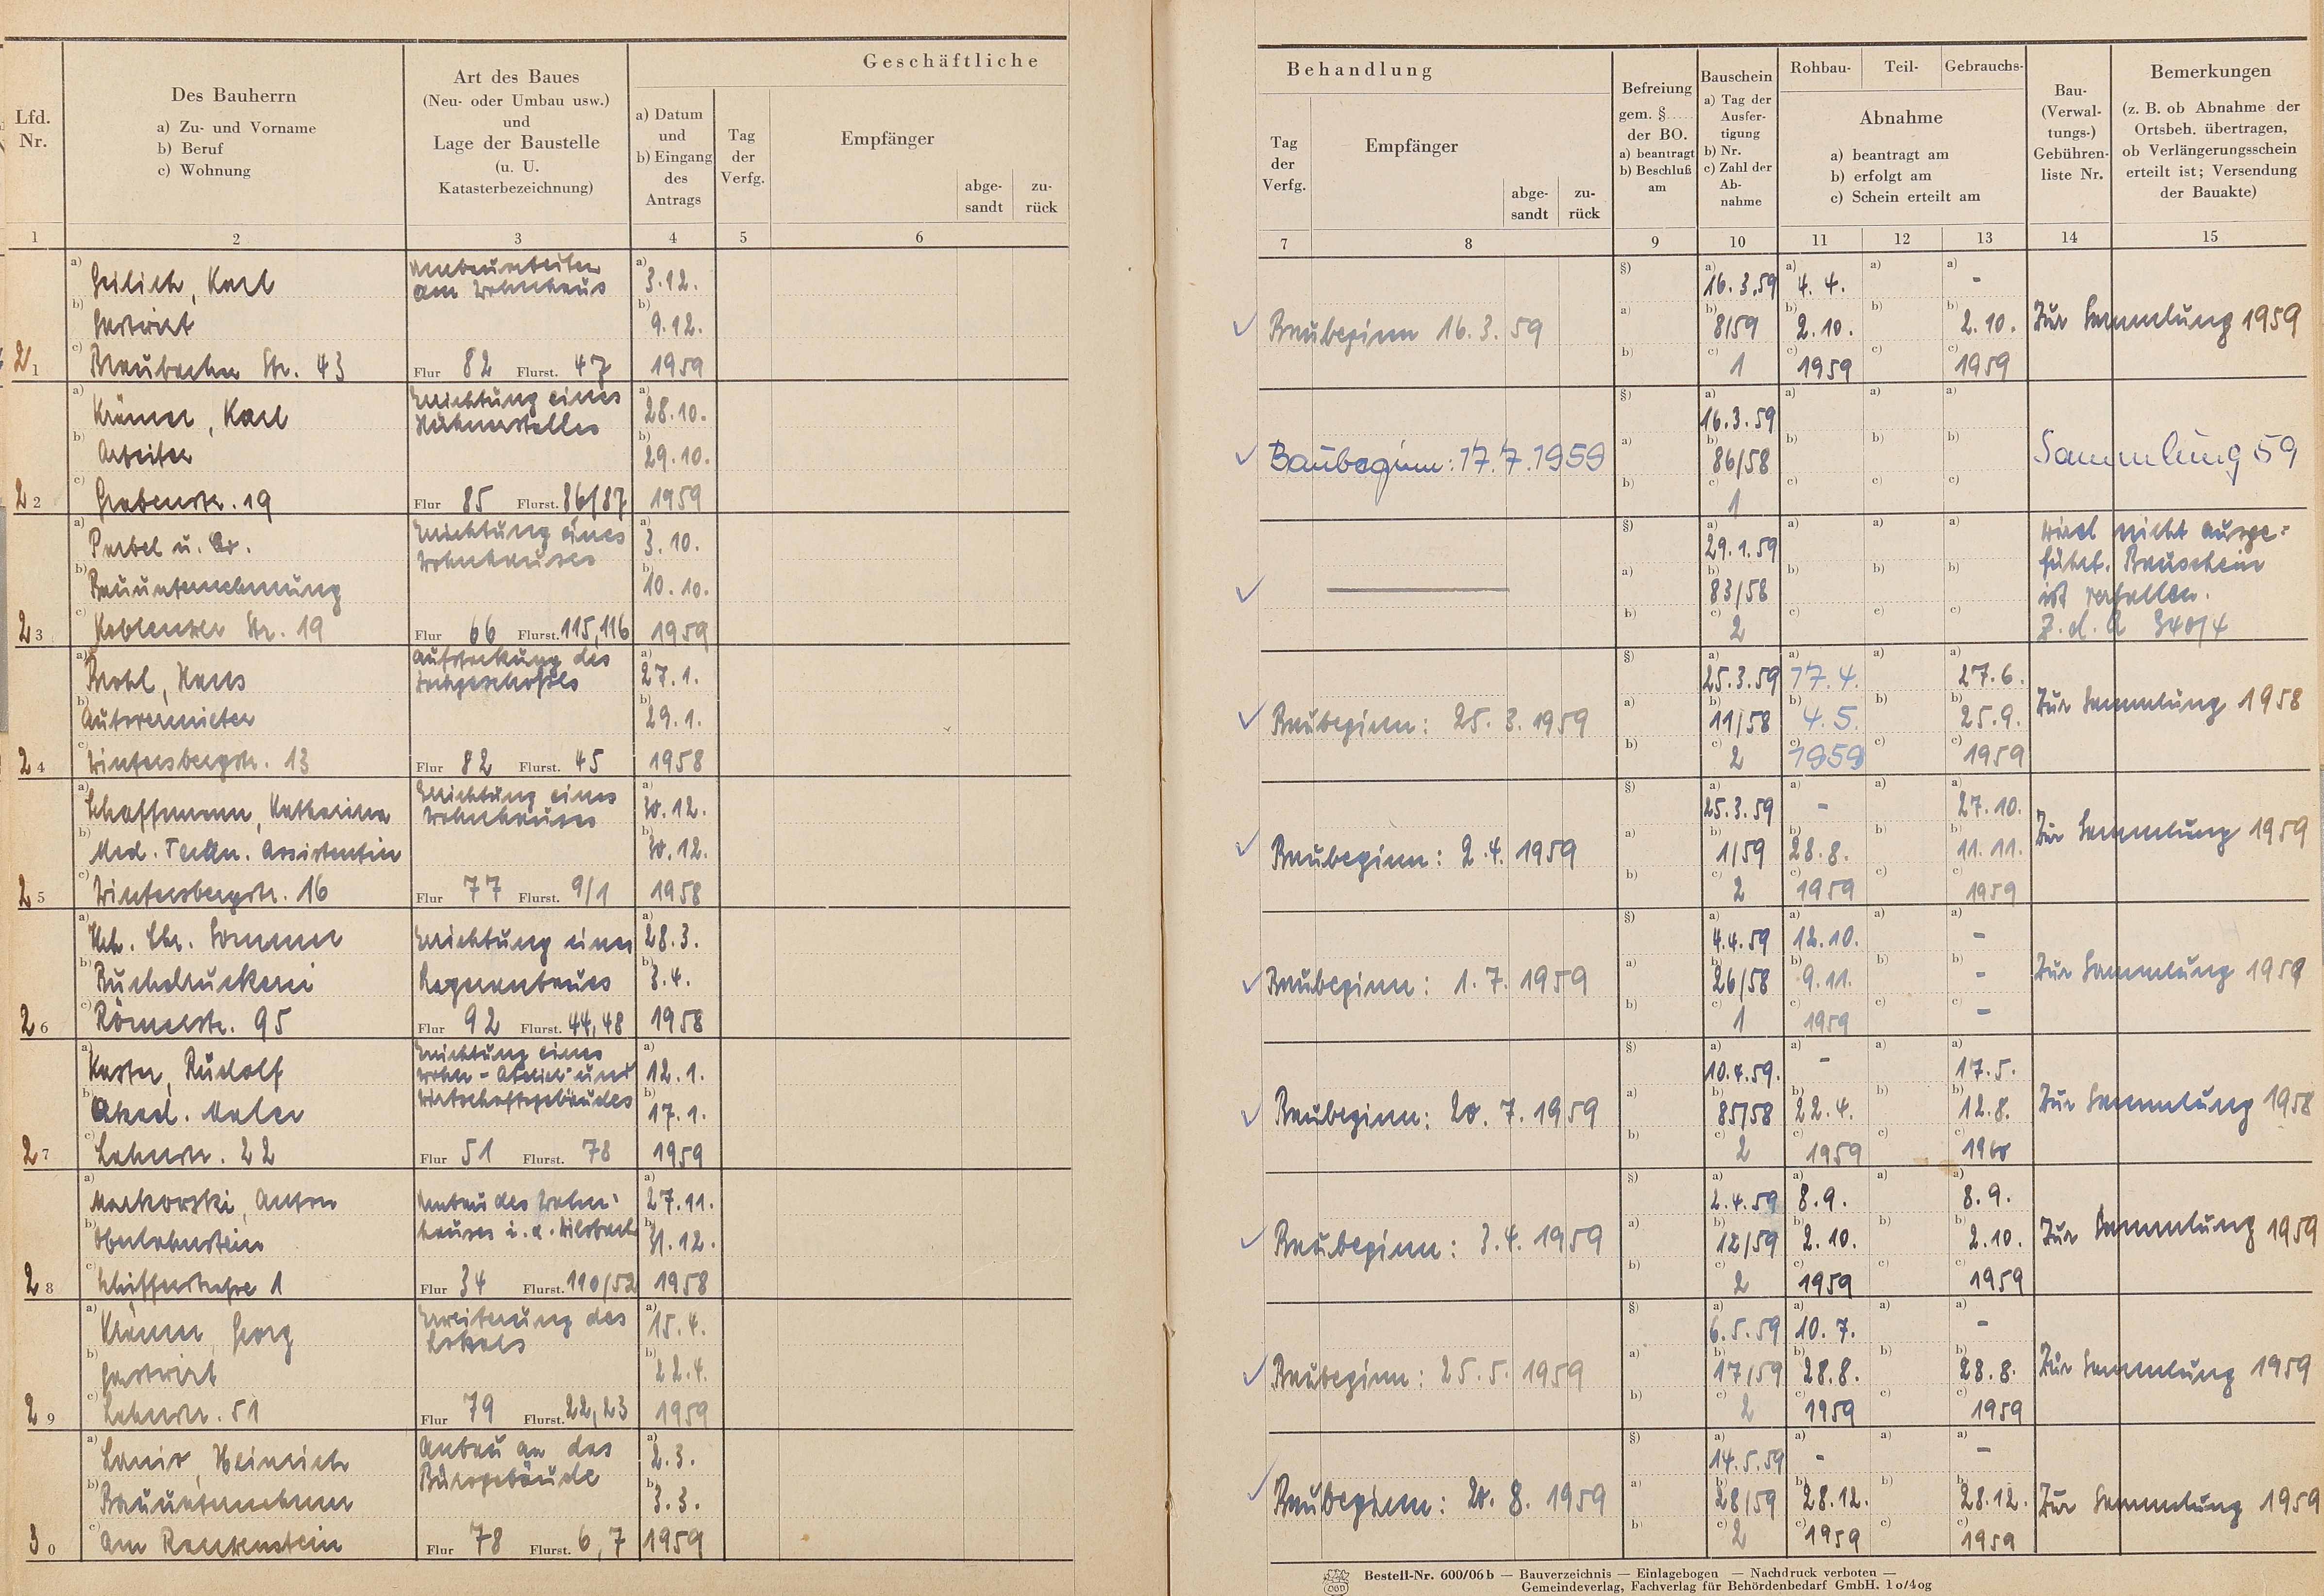 Geschäftliche
Behandlung
Lfd. Nr.
Des Bauherrn
a) Zu- und Vorname
b) Beruf
c) Wohnung
Art des Baues
(Neu- oder Umbau usw.)
und
Lage der Baustelle
(u. U.
Katasterbezeichnung)
a) Datum
und
b) Eingang
des
Antrags
Tag
der
Verfg.
Empfänger
abge-
sandt
zu-
rück
Tag
der
Verfg.
Empfänger
abge-
sandt
zu-
rück
Befreiung
gem. §.....
der BO.
a) beantragt
b) Beschluß
am
Bauschein
a) Tag der
Ausfer-
tigung
b) Nr.
c) Zahl der
Ab-
nahme
Rohbau- Teil- Gebrauchs-
Abnahme
a) beantragt am
b) erfolgt am
c) Schein erteilt am
Bau-
(Verwal-
tungs-)
Gebühren-
liste Nr.
Bemerkungen
(z. B. ob Abnahme der
Ortsbeh. übertragen,
ob Verlängerungsschein
erteilt ist; Versendung
der Bauakte)
1 2 3 4 5 6 7 8 9 10 11 12 13 14 15
a) Geilich, Karl Umbauarbeiten am Wohnhaus a) 3.12. a) 16.3.59 a) 4.4. a) -
b) Gastwirt b) 9.12. Baubeginn 16.3.59 b) 8/59 b) 2.10. b) 2.10. Zur Sammlung 1959
21 c) Braubacher Str. 43 Flur 82 Flurst. 47 1959 c) 1 c) 1959 c) 1959
a) Krämer, Karl Errichtung eines Hühnerstalles a) 28.10. a) 16.3.59
b) Arbeiter b) 29.10. Baubeginn: 17.7.1959 b) 86/58 Sammlung 59
22 c) Grabenstr. 19 Flur 85 Flurst. 86/87 1959 c) 1
a) u. Co. Errichtung eines Wohnhauses a) 3.10. a) 29.1.59 wird nicht ausge-
b) Bauunternehmung b) 10.10. b) 83/58 führt. Bauschein
ist verfallen.
23 c) Koblenzer Str. 19 Flur 66 Flurst. 115,116 1959 c) 2 Z.d.A
a) Hans Aufstockung des Dachgeschosses a) 27.1. a) 25.3.59 a) 17.4. a) 27.6.
b) Autovermieter b) 29.1. Baubeginn: 25.3.1959 b) 11/58 b) 4.5. b) 25.9. Zur Sammlung 1958
24 c) Wintersbergstr. 13 Flur 82 Flurst. 45 1958 c) 2 c) 1959 c) 1959
a) Schaffmann, Katharina Errichtung eines Wohnhauses a) 30.12. a) 25.3.59 a) - a) 27.10.
b) Med. Techn. Assistentin b) 30.12. Baubeginn: 2.4.1959 b) 1/59 b) 28.8. b) 11.11. Zur Sammlung 1959
25 c) Wintersbergstr. 16 Flur 77 Flurst. 9/1 1958 c) 2 c) 1959 c) 1959
a) Sommer Errichtung eines a) 28.3. a) 4.4.59 a) 12.10. a) -
b) Buchdruckerei Lageranbaues b) 3.4. Baubeginn: 1.7.1959 b) 26/58 b) 9.11. b) - Zur Sammlung
26 c) Römerstr. 95 Flur 92 Flurst. 44,48 1958 c) 1 c) 1959 c) -
a) Rudolf Errichtung eines Wohn- Atelier- und a) 12.1. a) 10.4.59. a) - a) 17.5.
b) Akad. Maler Wirtschaftsgebäudes b) 17.1. Baubeginn: 20.7.1959 b) 85/58 b) 22.4. b) 12.8. Zur Sammlung 1958
27 c) Lahnstr. 22 Flur 51 Flurst. 78 1959 c) 2 c) 1959 c) 1960
a) Markowski, Anton Umbau des Wohn- a) 27.11. a) 2.4.59 a) 8.9. a) 8.9.
b) Oberlahnstein hauses i. d. b) 31.12. Baubeginn: 3.4.1959 b) 12/59 b) 2.10. b) 2.10. Zur Sammlung 1959
28 c) Schifferstrasse 1 Flur 34 Flurst. 110/52 1958 c) 2 c) 1959 c) 1959
a) Krämer, Georg Erweiterung des Lokals a) 15.4. a) 6.5.59 a) 10.7. a) -
b) Gastwirt b) 22.4. Baubeginn: 25.5.1959 b) 17/59 b) 28.8. b) 28.8. Zur Sammlung 1959
29 c) Lahnstr. 51 Flur 79 Flurst. 22,23 1959 c) 2 c) 1959 c) 1959
a) Heinrich Anbau an das Bürogebäude a) 2.3. a) 14.5.59 a) - a) -
b) Bauunternehmer b) 3.3. Baubeginn: 20.8.1959 b) 28/59 b) 28.12. b) 28.12. Zur Sammlung 1959
30 c) Am Flur 78 Flurst. 6,7 1959 c) 2 c) 1959 c) 1959
Bestell-Nr. 600/06 b — Bauverzeichnis — Einlagebogen — Nachdruck verboten —
Gemeindeverlag, Fachverlag für Behördenbedarf GmbH.